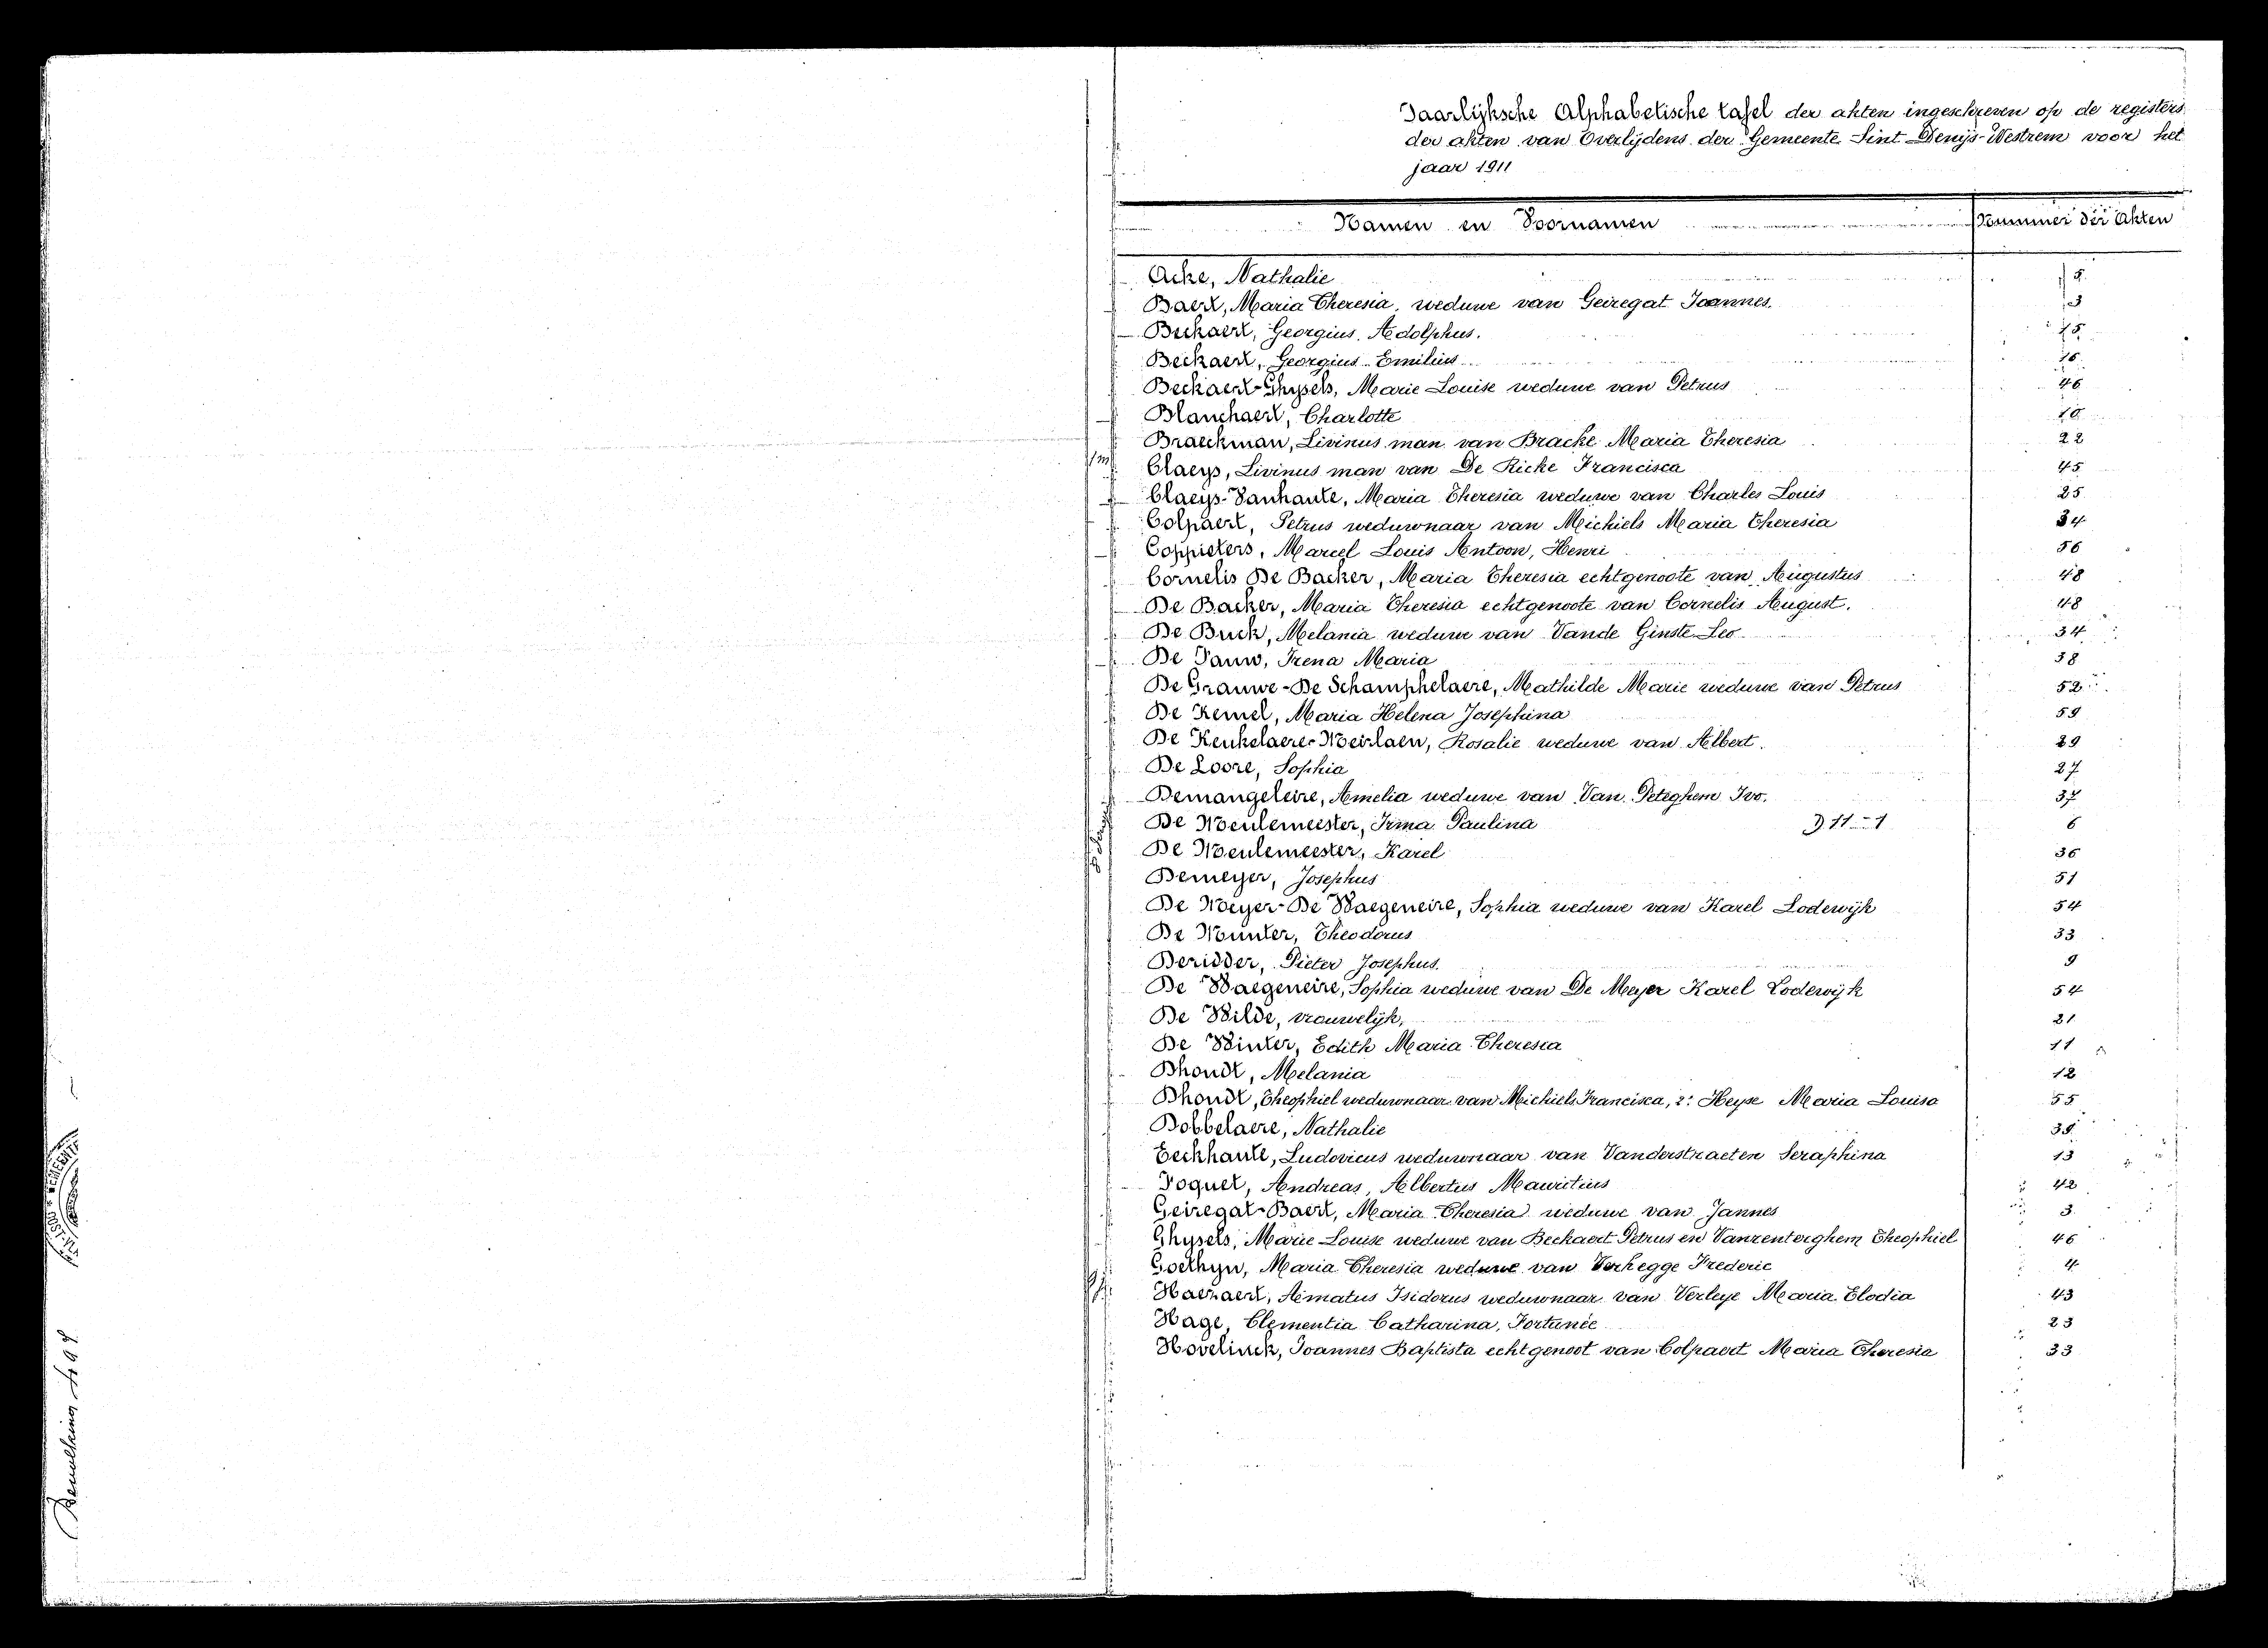 Jaarlijksche Alphabetische tafel der akten ingeschreven op de registers
der akten van Overlijdens der Gemeente Sint-Denijs-Westrem voor het
jaar 1911
Namen en Voornamen Nummer der Akten
Acke, Nathalie
Baert, Maria Theresia, weduwe van Geiregat Joannes. 3
Beckaert, Georgius, Adolphus. 15
Beckaert, Georgius Emilius 16
Beckaert-Ghysels, Marie Louise weduwe van Petrus 46
Blanchaert, Charlotte 10
Braeckman, Livinus man van Bracke Maria Theresia 22
Claeys, Livinus man van De Ricke Francisca 45
Claeys-Vanhaute, Maria Theresia weduwe van Charles Louis 25
Colpaert, Petrus weduwnaar van Michiels Maria Theresia 24
Coppieters, Marcel Louis Antoon, Henri 56
Cornelis De Backer, Maria Theresia echtgenoote van Augustus 48
De Backer, Maria Theresia echtgenoote van Cornelis August. 48
De Buck, Melania weduwe van Vande Ginste Leo 34
De Pauw, Irena Maria 38
De Grauwe-De Schamphelaere, Mathilde Marie weduwe van Petrus 52
De Kemel, Maria Helena Josephina 59
De Keukelaere-Meirlaen, Rosalie weduwe van Albert. 29
De Loore, Sophia 27
Demangeleire, Amelia weduwe van Van Peteghem Ivo. 37
De Meulemeester, Irma Paulina D 11-1 6
De Meulemeester, Karel 36
Demeyer, Josephus 51
De Meyer-De Waegeneire, Sophia weduwe van Karel Lodewijk 54
De Munter, Theodorus 33
Deridder, Pieter Josephus. 9
De Waegeneire, Sophia weduwe van De Meyer Karel Lodewijk 54
De Wilde, vrouwelijk, 21
De Winter, Edith Maria Theresia 11
Dhondt, Melania 12
Dhondt, Theophiel weduwnaar van Michiels Francisca, 2: Heyse Maria Louisa 55
Dobbelaere, Nathalie 39
Eeckhaute, Ludovicus weduwnaar van Vanderstraeten Seraphina 13
Foquet, Andreas, Albertus Mauritius 42
Geiregat-Baert, Maria Theresia weduwe van Jannes 3
Ghysels, Marie Louise weduwe van Beckaert Petrus en Vanrenterghem Theophiel 46
Goethyn, Maria Theresia weduwe van Verhegge Frederic 4
Haenaert, Aimatus Isidorus weduwnaar van Verleye Maria Elodia 43
Hage, Clementia Catharina, Fortunée 23
Hovelinck, Joannes Baptista echtgenoot van Colpaert Maria Theresia 33